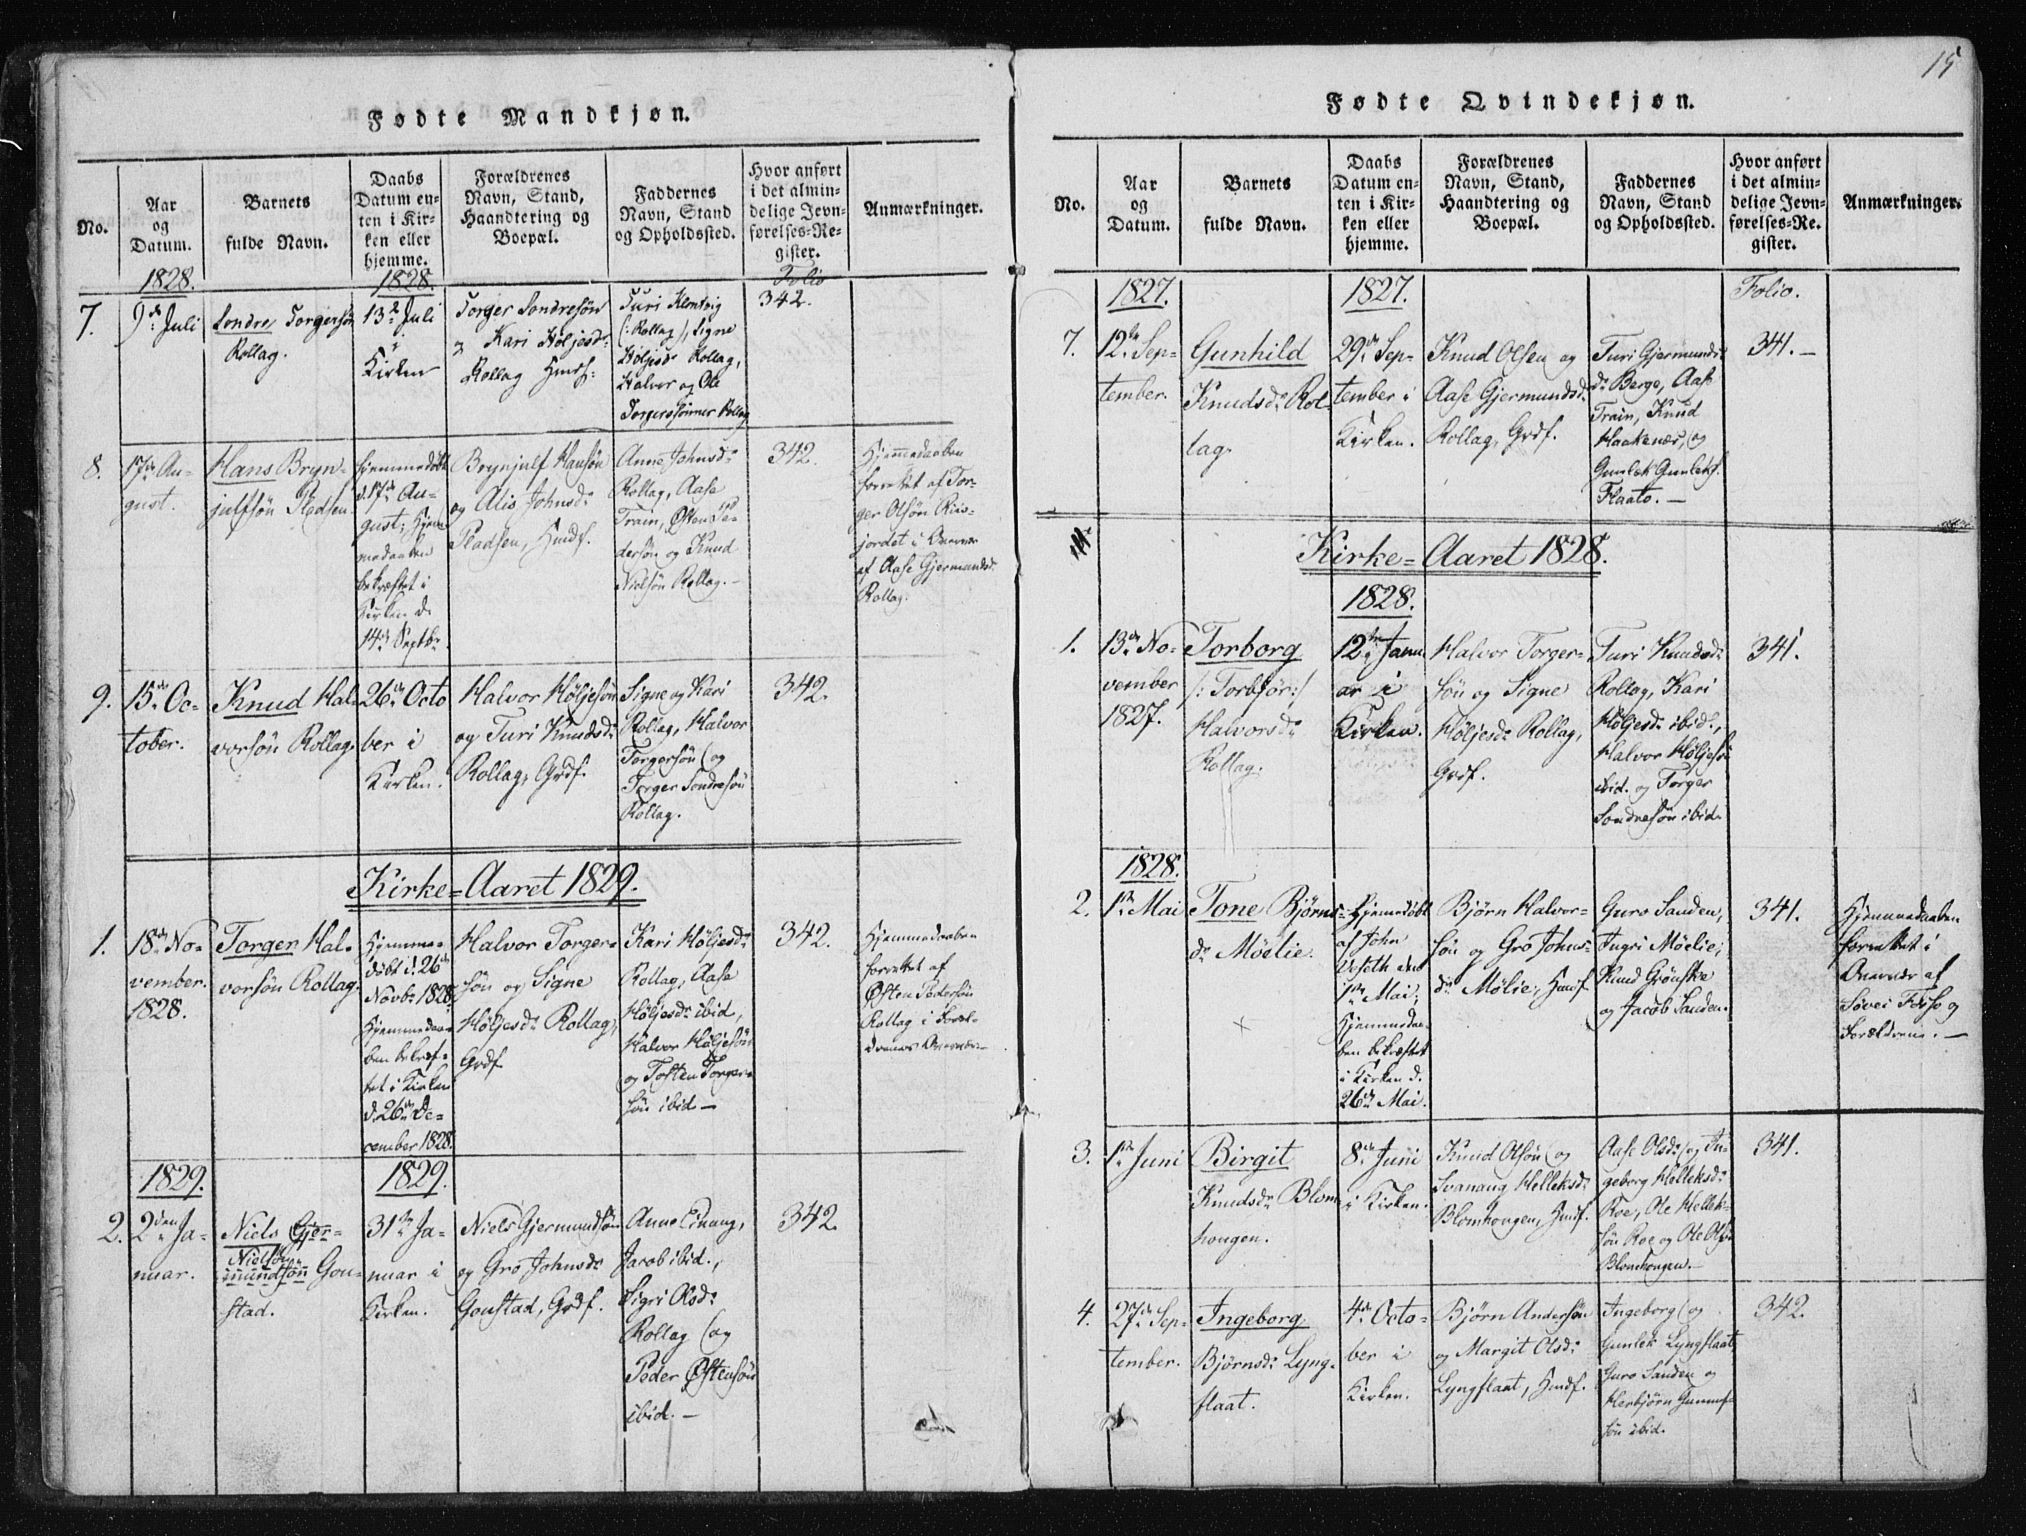 Fødte Mandkjøn.
No.
Aar
og
Datum.
Barnets
fulde Navn.
Daabs
Datum en-
ten i Kir-
ken eller
hjemme.
Forældrenes
Navn, Stand,
Haandtering og
Boepæl.
Faddernes
Navn, Stand
og Opholdssted.
Hvor anført
i det almin-
delige Jevn-
førelses-Re-
gister.
Anmærkninger.
1828.
1828.
Folio
7.
9de Juli
Sondre Torgersøn
Rollag.
13de Juli
i
Kirken
Torger Sondresøn
og Kari Høljesdr
Rollag Husf:
Turi
(: Rollag), Signe
Høljesdr Rollag,
Halvor og Ole
Torgersønner Rollag
342.
8.
17de Au-
gust.
Hans Bryn-
julfsøn Pladsen.
Hjemmedøbt
d. 17de Au-
gust; Hjem-
medaaben
bekræftet i
Kirken d.
14de Septbr
Brynjulf Hansøn
og Alis Johnsdr
Pladsen, Husf.
Anne Johnsdr
Rollag, Aase
Train, Østen Pe-
dersøn og Knud
Nielsøn Rollag. –
342.
Hjemmedaaben
forrettet af Tor-
ger Olsøn Riis-
jordet i Overvær
af Aase Gjermundsdr
Rollag.
9.
15de Oc-
tober.
Knud Hal-
vorsøn Rollag.
26de Octo
ber i
Kirken.
Halvor Høljesøn
og Turi Knudsdr
Rollag, Grdf.
Signe og Kari
Rollag, Halvor
Torgersøn og
Torger Sondresøn
Rollag.
342.
Kirke=Aaret 1829.
1.
18de No-
vember.
1828.
Torger Hal-
vorsøn Rollag.
Hjemme-
døbt d. 26de
Novbr 1828.
Hjemmedaa-
ben bekræf-
tet i Kirken
d. 26de De-
cember 1828.
Halvor Torger-
søn og Signe
Høljesdr Rollag,
Grdf
Kari Høljesdr
Rollag, Aase
Høljesdr ibid,
Halvor Høljesøn
og Tosten Torger-
søn ibid –
342.
Hjemmedaaben
forrettet af
Østen Pedersøn
Rollag i Foræl-
drenes Overvær. –
1829.
1829.
2.
2den Ja-
nuar.
Niels Gjer-
Nielsøn
mundsøn Gou-
stad.
31te Ja-
nuar i
Kirken.
Niels Gjermundsøn
og Gro Johnsdr
Goustad, Grdf.
Anne Einang,
Jacob ibid.,
Sigri Olsdr
Rollag og
Peder Østensøn
ibid. –
342.
15
Fødte Qvindekjøn.
No.
Aar
og
Datum.
Barnets
fulde Navn.
Daabs
Datum en-
ten i Kir-
ken eller
hjemme.
Forældrenes
Navn, Stand,
Haandtering og
Boepæl.
Faddernes
Navn, Stand
og Opholdssted.
Hvor anført
i det almin-
delige Jevn-
førelses-Re-
gister.
Anmærkninger.
1827.
1827.
Folio.
7.
12te Sep-
tember.
Gunhild
Knudsdr Rol-
lag.
29de Sep-
tember i
Kirken.
Knud Olsen og
Aase Gjermundsdr
Rollag, Grdf.
Turi Gjermunds-
dr Berge, Aase
Train, Knud
Haakenær, og
Gunlek Gunleks.
Flaato. –
341. –
Kirke=Aaret 1828.
1828.
1.
13de No-
vember
1827.
Torborg
/: Torbjør:/
Halvorsdr
Rollag.
12te Janu
ar i
Kirken.
Halvor Torger-
søn og Signe
Høljesdr Rollag,
Grdf.
Turi Knudsdr
Rollag, Kari
Høljesdr ibid.,
Halvor Høljesøn
ibid. og Torger
Sondresøn ibid.
341.
1828.
2.
1ste Mai
Tone Bjørns-
dr Moëlie.
Hjemmedøbt
af John
Veseth den
1ste Mai;
Hjemmedaa-
ben bekræftet
i Kirken d.
26de Mai.
Bjørn Halvor-
søn og Gro Johns-
dr Mølie, Husf
Guro Sanden,
Ingri Möelie,
Knud Grønske
og Jacob Sanden.
341.
Hjemmedaaben
forrettet i
Overvær af
Søvei Forse og
Forældrene. –
3.
1ste Juni
Birgit
Knudsdr Blom-
hougen.
8de Juni
i Kirken.
Knud Olsøn og
Svanaug Helleksdr
Blomhougen, Husf.
Aase Olsdr og In-
geborg Helleksdr
Roe, Ole Hellek-
søn Roe og Ole Olsøn
Blomhougen. –
341.
4.
27de Sep-
tember.
Ingeborg
Bjørnsdr Lyng-
flaat.
4de Octo-
ber i
Kirken.
Bjørn Andersøn
og Margit Olsdr
Lyngflaat, Husf.
Ingeborg og
Gunlek Lyngflaat,
Guro Sanden og
Herbjørn Gunnuf-
søn ibid.
342.